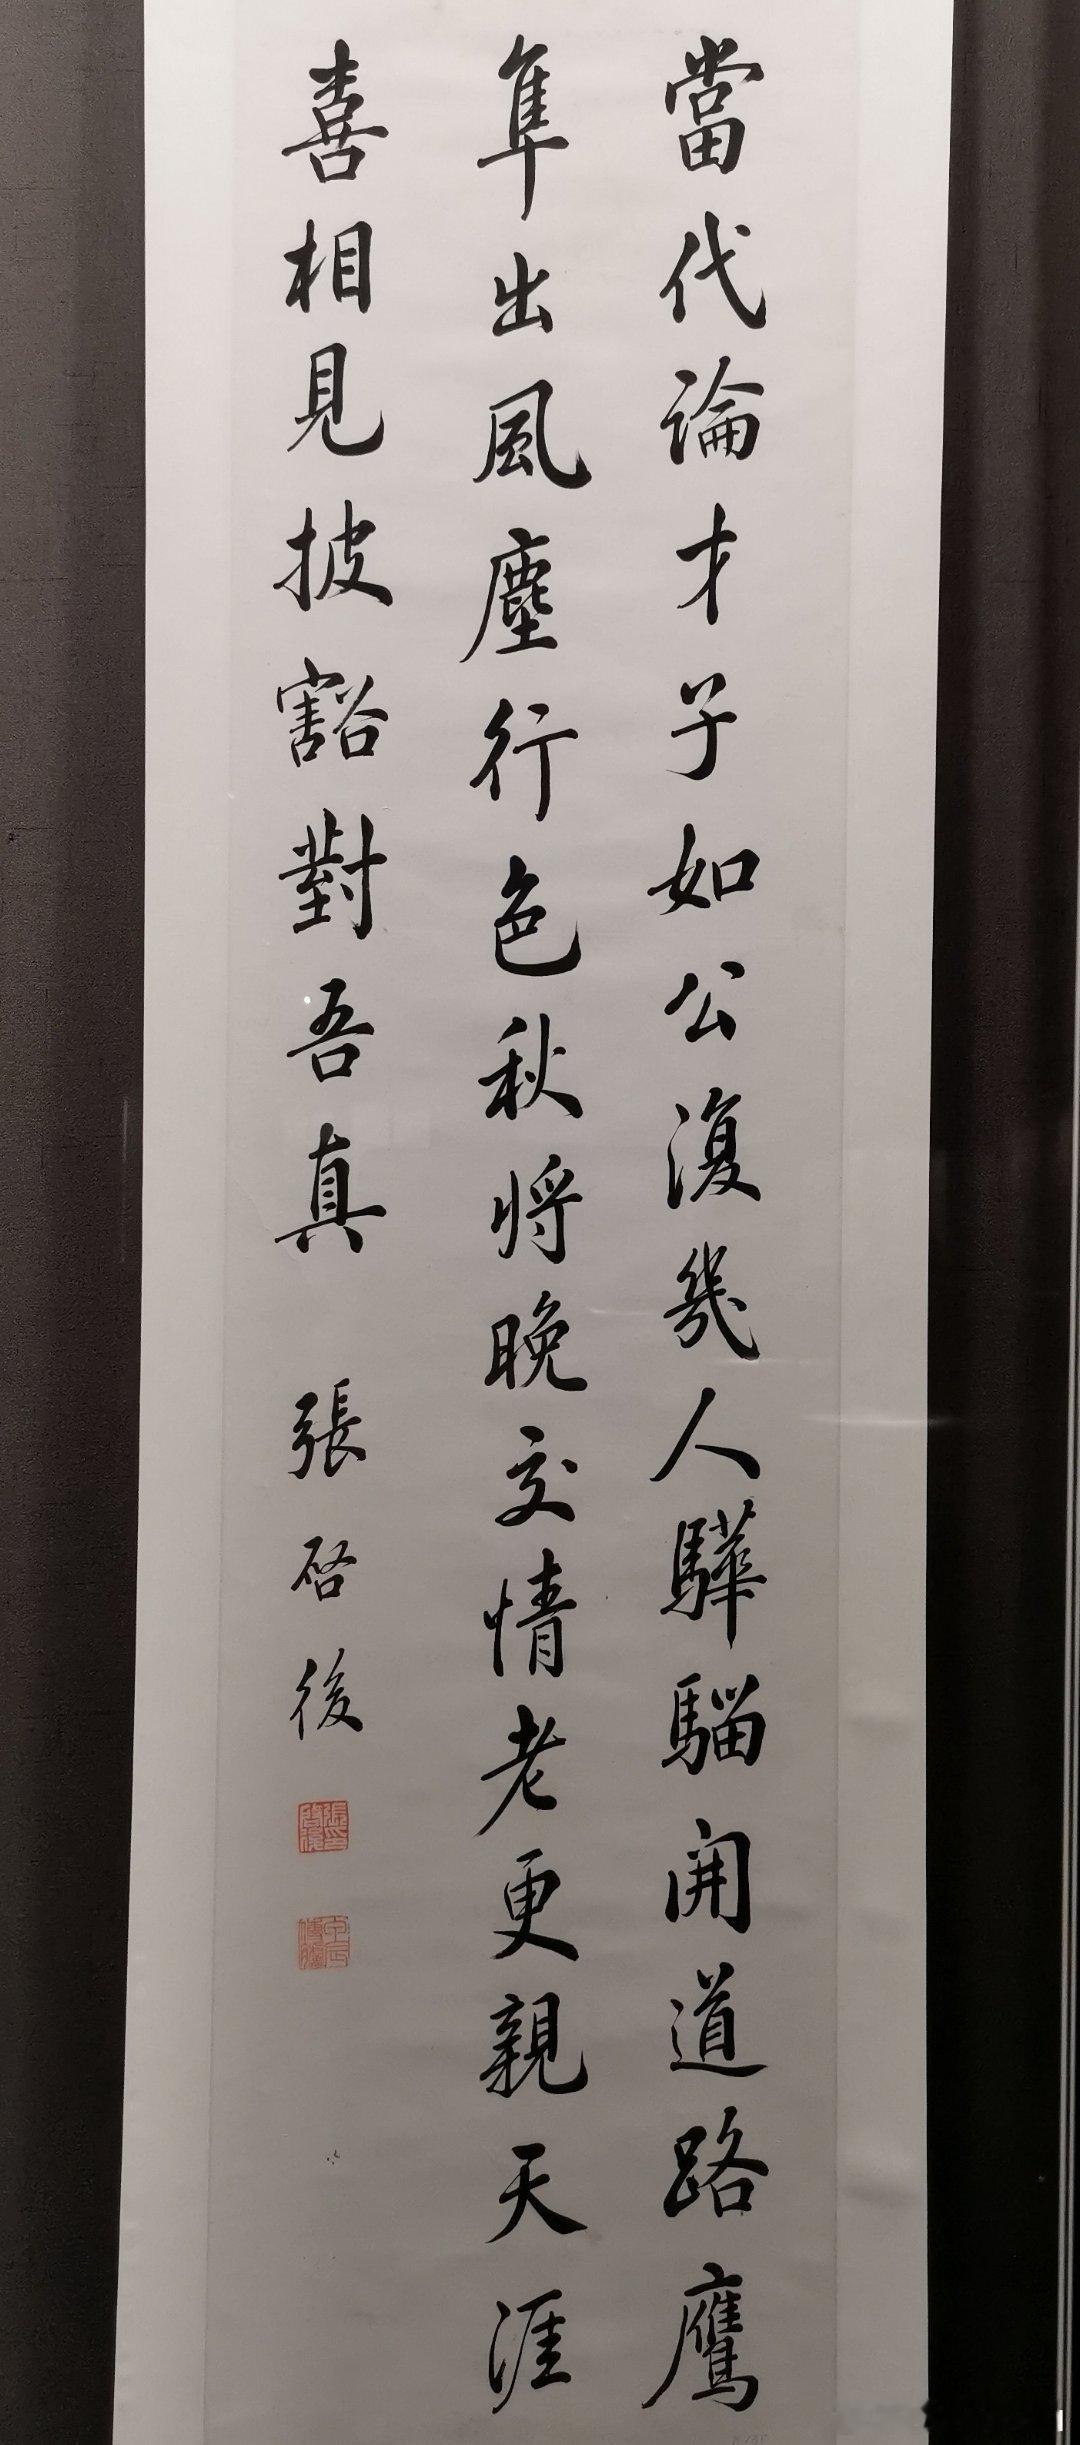 當代論才子如公復幾人驊騮開道路鷹
隼出風塵行色秋將晚交情老更親天涯
喜相見披豁對吾真
張啓後
張啓後印
甲辰傳臚